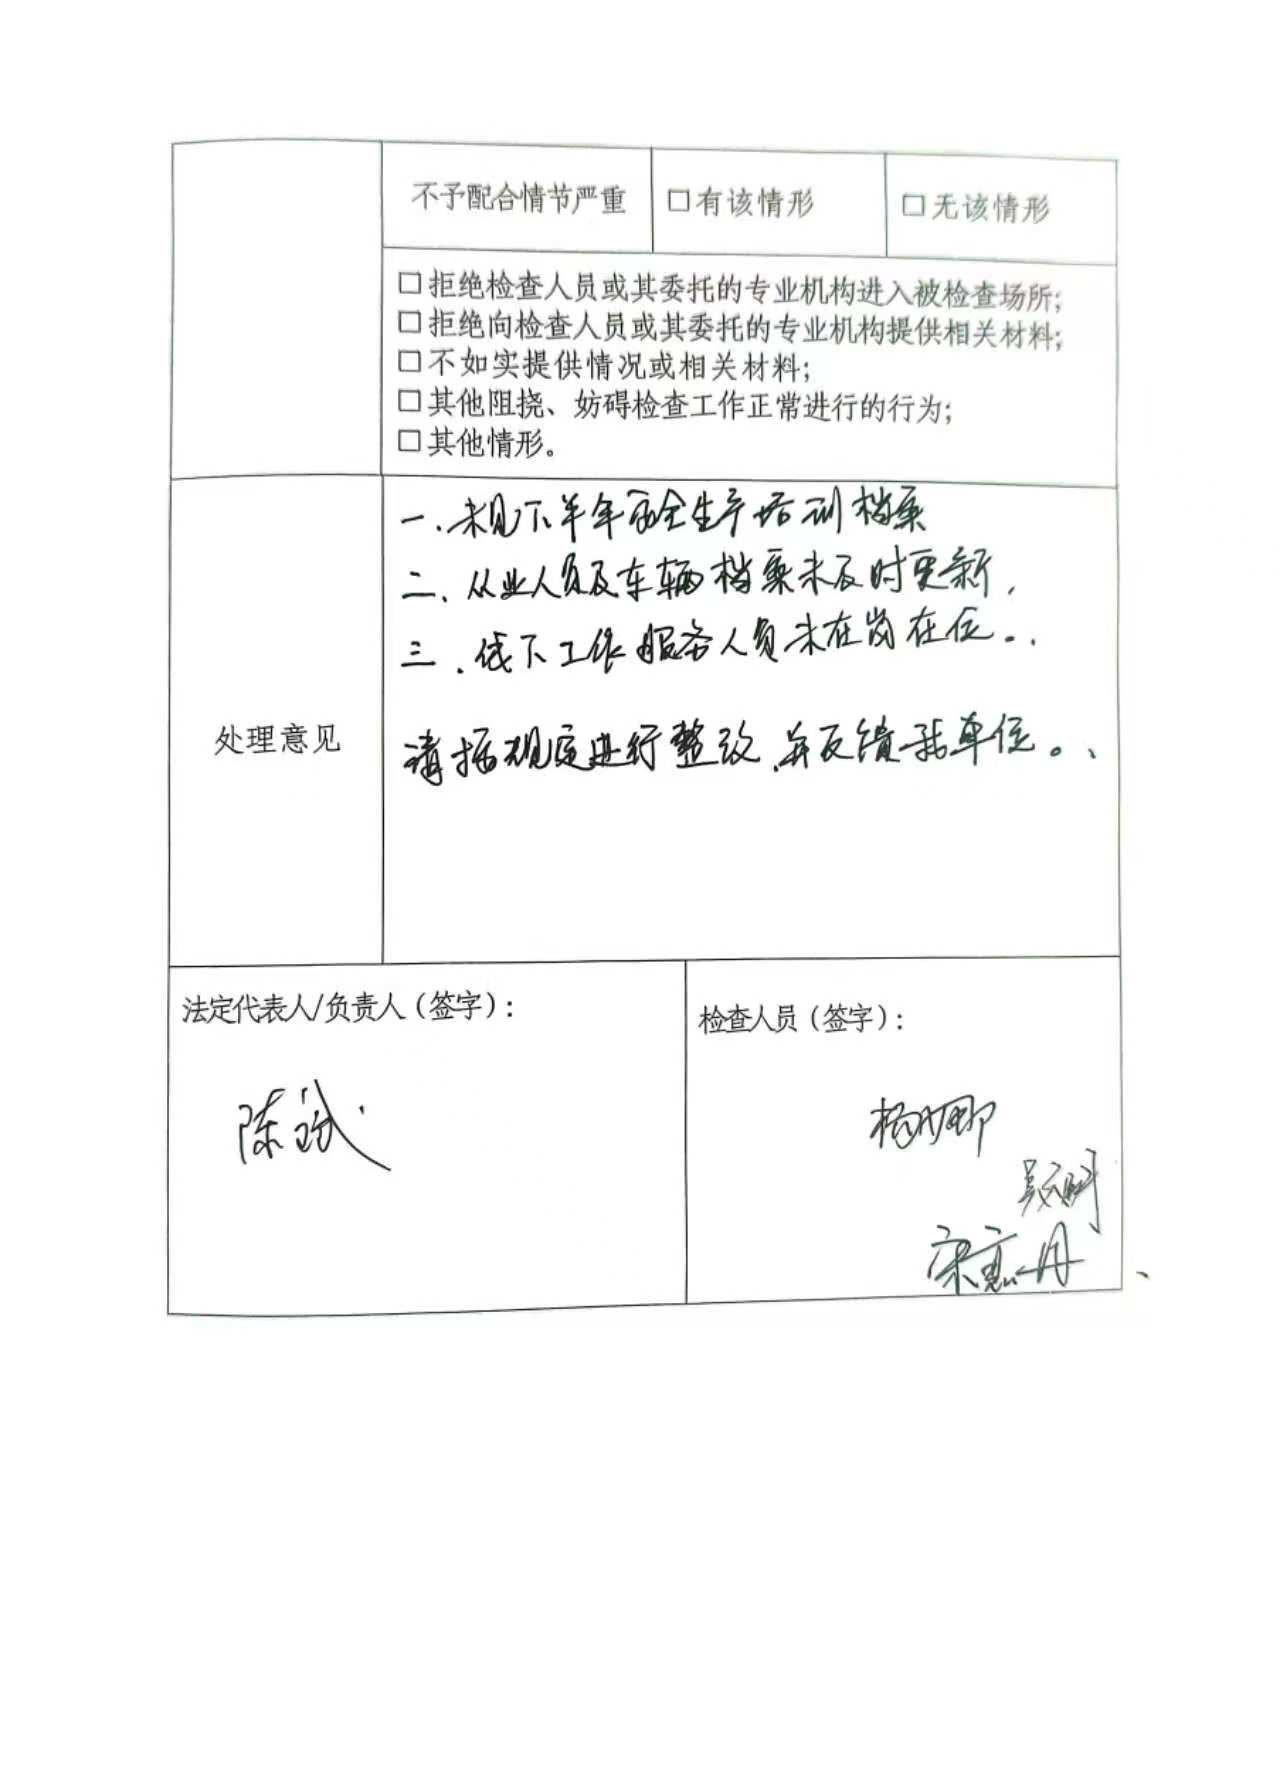 不予配合情节严重 □有该情形 □无该情形
□拒绝检查人员或其委托的专业机构进入被检查场所;
□拒绝向检查人员或其委托的专业机构提供相关材料;
□不如实提供情况或相关材料;
□其他阻挠、妨碍检查工作正常进行的行为;
□其他情形。
处理意见
一、未见下半年安全生产培训档案
二、从业人员及车辆档案未及时更新,
三、线下工作服务人员未在岗在位。
请按规定进行整改,并反馈我单位。
法定代表人/负责人(签字):
检查人员(签字):
陈
杨娜
宋惠丹